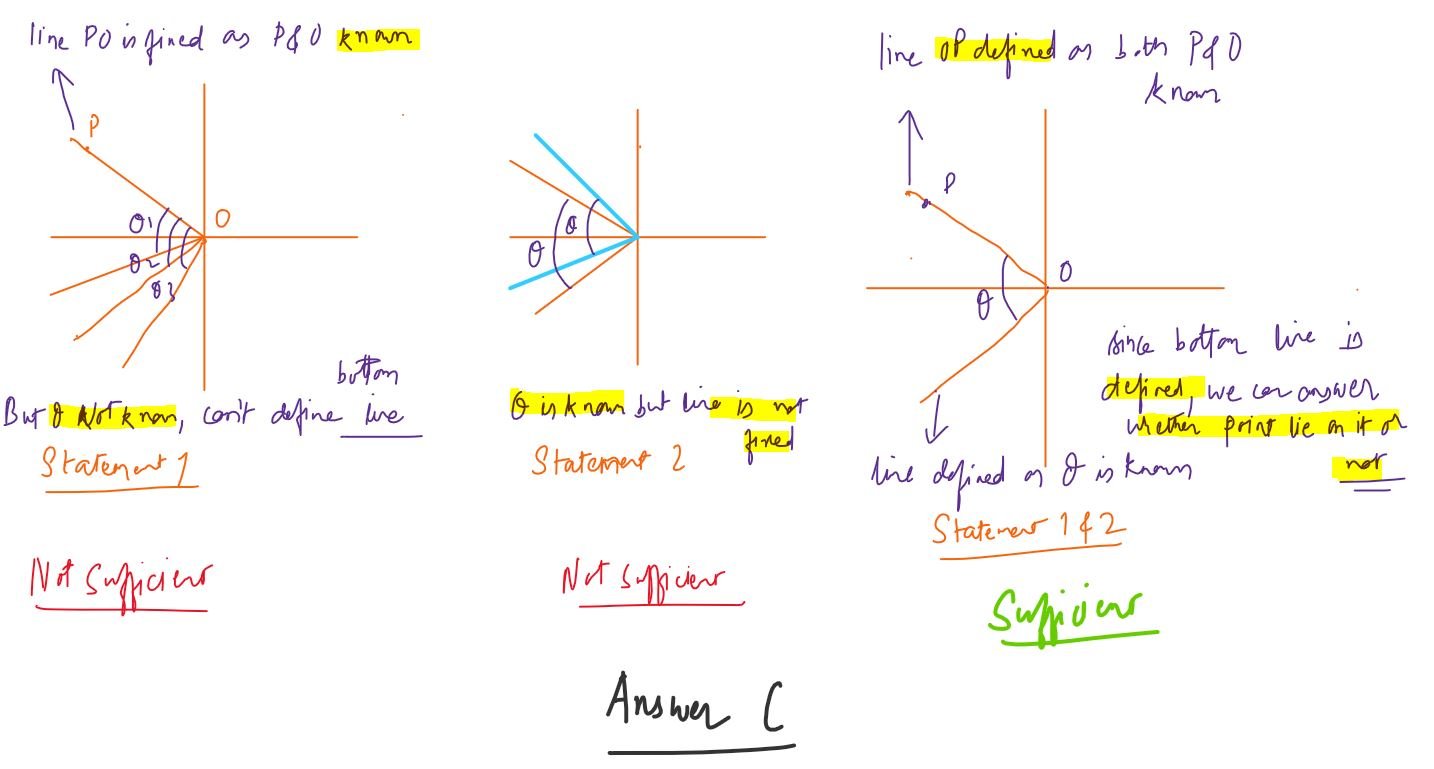 line PO is fined as P & O known
P
O
θ1
θ2
θ3
bottom
But θ Not known, can't define line
Statement 1
Not Sufficient
θ
θ
θ is known but line is not
fined
Statement 2
Not Sufficient
line OP defined as both P & O
known
P
O
θ
since bottom line is
defined, we can answer
whether point lie on it or
not
line defined as θ is known
Statement 1 & 2
Sufficient
Answer C